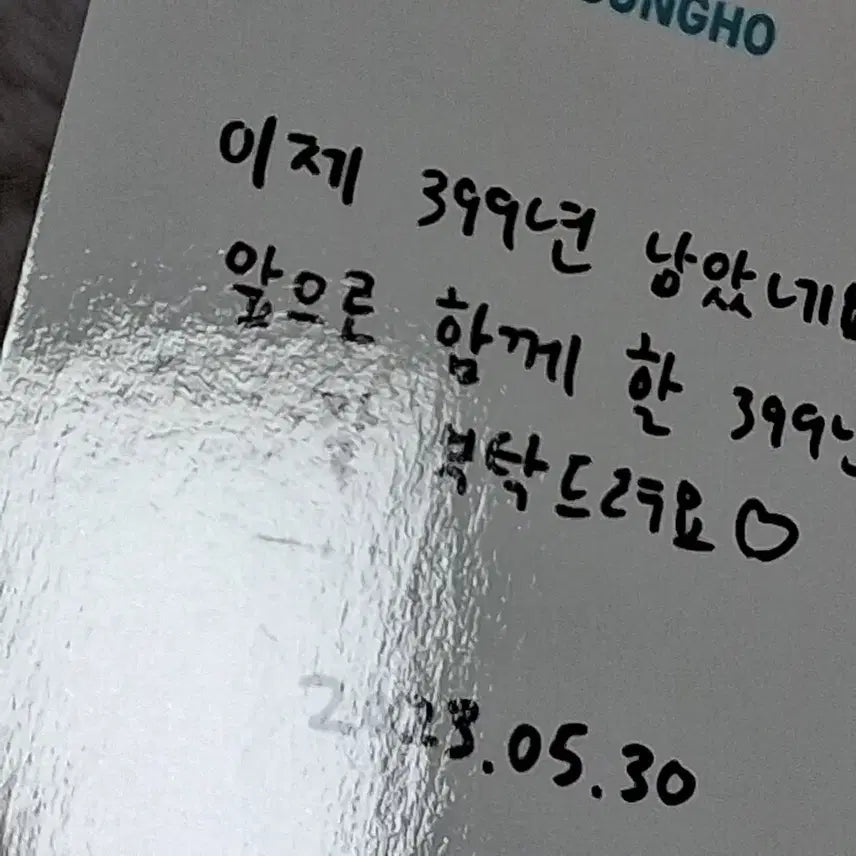 UNGHO
이제 399년 남았네
앞으로 함께 할 399년
부탁드려요♡
2023.05.30